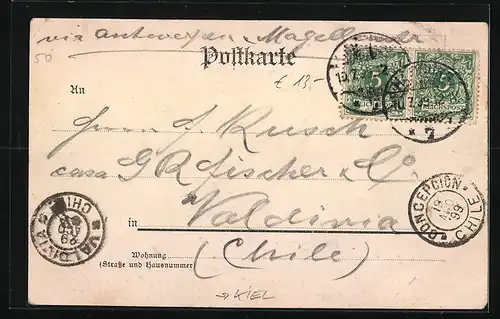 via Antwerpen Magellan
50
Postkarte
5 5
REICHSPOST
€ 13.-
An
Herrn J. Rusch
casa G R Fischer & Co.
in Valdivia
(Chile)
Wohnung
(Straße und Hausnummer)
→ KIEL
7
VALDIVIA
CHILE
CONCEPCION
99
CHILE